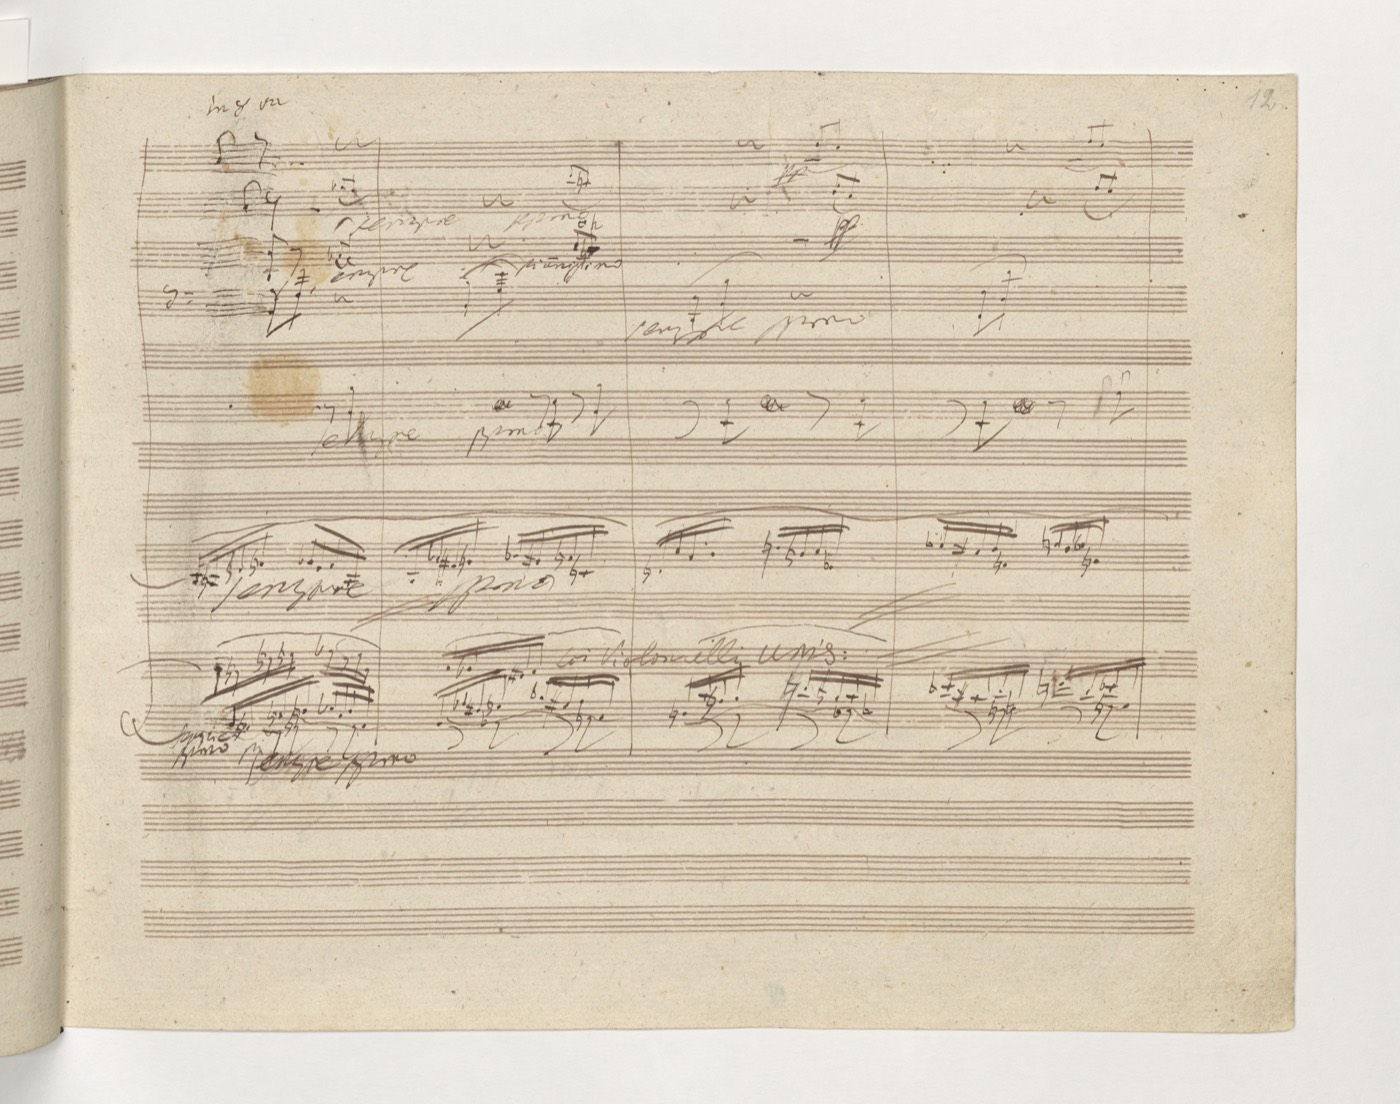 12
in 8va
sempre piano
pp
sempre pianissimo
pp
sempre piano
sempre piano
sempre piano
coi Violoncelli unis:
sempre
piano
sempre piano